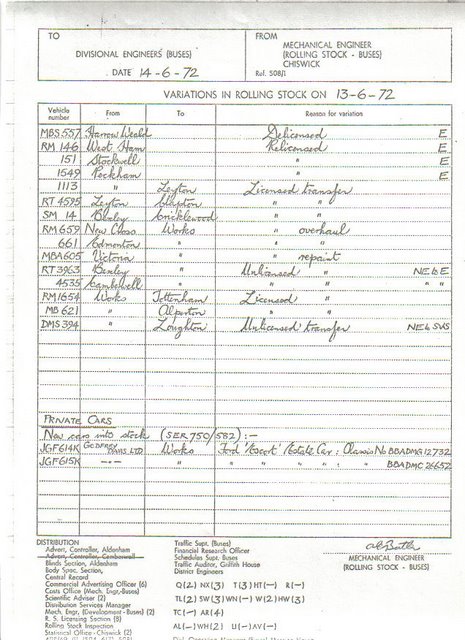 TO
DIVISIONAL ENGINEERS (BUSES)
DATE 14-6-72
FROM
MECHANICAL ENGINEER
(ROLLING STOCK - BUSES)
CHISWICK
Ref. 508/1
VARIATIONS IN ROLLING STOCK ON 13-6-72
Vehicle number From To Reason for variation
MBS 557 Harrow Weald Delicensed E
RM 146 West Ham Relicensed E
151 Stockwell " E
1549 Peckham " E
1113 " Leyton Licensed transfer
RT 4595 Leyton " "
SM 14 Bexley Cricklewood " "
RM 659 New Cross Works " overhaul
661 Edmonton " " "
MBA 605 Victoria " " repaint
RT 3963 Bexley " Unlicensed " NE6E
4535 Camberwell " " " " "
RM 1654 Works Tottenham Licensed "
MB 621 " Alperton " "
DMS 394 " Loughton Unlicensed transfer NE6 SVS
PRIVATE CARS
New cars into stock (SER 750/582) :-
JGF 614K GODFREY DAVIS LTD Works Ford 'Escort' Estate Car : Chassis No BBADMG 12732
JGF 615K -"- " " " " : " BBADMC 26652
DISTRIBUTION
Advert. Controller, Aldenham
Advert. Controller, Camberwell
Blinds Section, Aldenham
Body Spec. Section,
Central Record
Commercial Advertising Officer (6)
Costs Office (Mech. Engr.-Buses)
Scientific Adviser (2)
Distribution Services Manager
Mech. Engr. (Development - Buses) (2)
R. S. Licensing Section (3)
Rolling Stock Inspection
Statistical Office - Chiswick (2)
Traffic Supt. (Buses)
Financial Research Officer
Schedules Supt. Buses
Traffic Auditor, Griffith House
District Engineers
Q(2) NX(3) T(3) HT(—) R(—)
TL(2) SW(3) WN(—) W(2) HW(3)
TC(—) AR(4)
AL(—) WH(2) U(—) AV(—)
MECHANICAL ENGINEER
(ROLLING STOCK - BUSES)